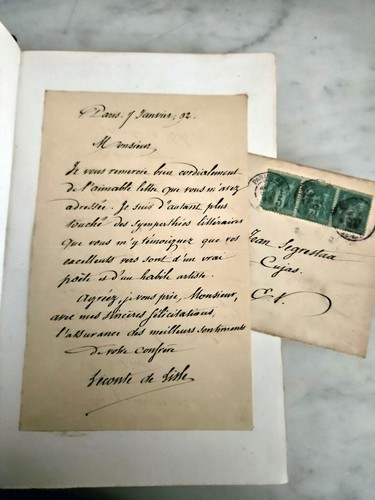 Paris, 7 Janvier, 92.
Monsieur,
Je vous remercie bien cordialement
de l'aimable lettre que vous m'avez
adressée. Je suis d'autant plus
touché des sympathies littéraires
que vous m'y témoignez que vos
excellents vers sont d'un vrai
poète et d'un habile artiste.
Agréez, je vous prie, Monsieur,
avec mes sincères félicitations,
l'assurance des meilleurs sentiments
de votre confrère
Leconte de Lisle
Jean Segrestaa
Cujas.
E. V.